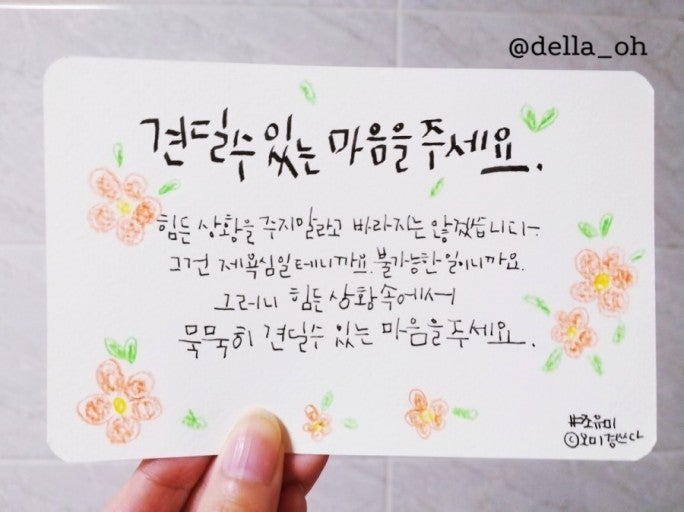 @della_oh
견딜수 있는 마음을 주세요.
힘든 상황을 주지말라고 바라지는 않겠습니다.
그건 제욕심일테니까요. 불가능한 일이니까요.
그러니 힘든 상황속에서
묵묵히 견딜수 있는 마음을 주세요.
#조유미
ⓒ오미경쓰다